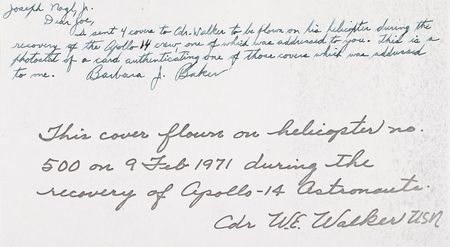 Joseph Nagl, Jr.
Dear Joe,
I sent 4 covers to Cdr. Walker to be flown on his helicopter during the
recovery of the Apollo 14 crew, one of which was addressed to you. This is a
photostat of a card authenticating one of those covers which was addressed
to me. Barbara J. Baker
This cover flown on helicopter no.
500 on 9 Feb 1971 during the
recovery of Apollo-14 Astronauts.
Cdr W.E. Walker USN